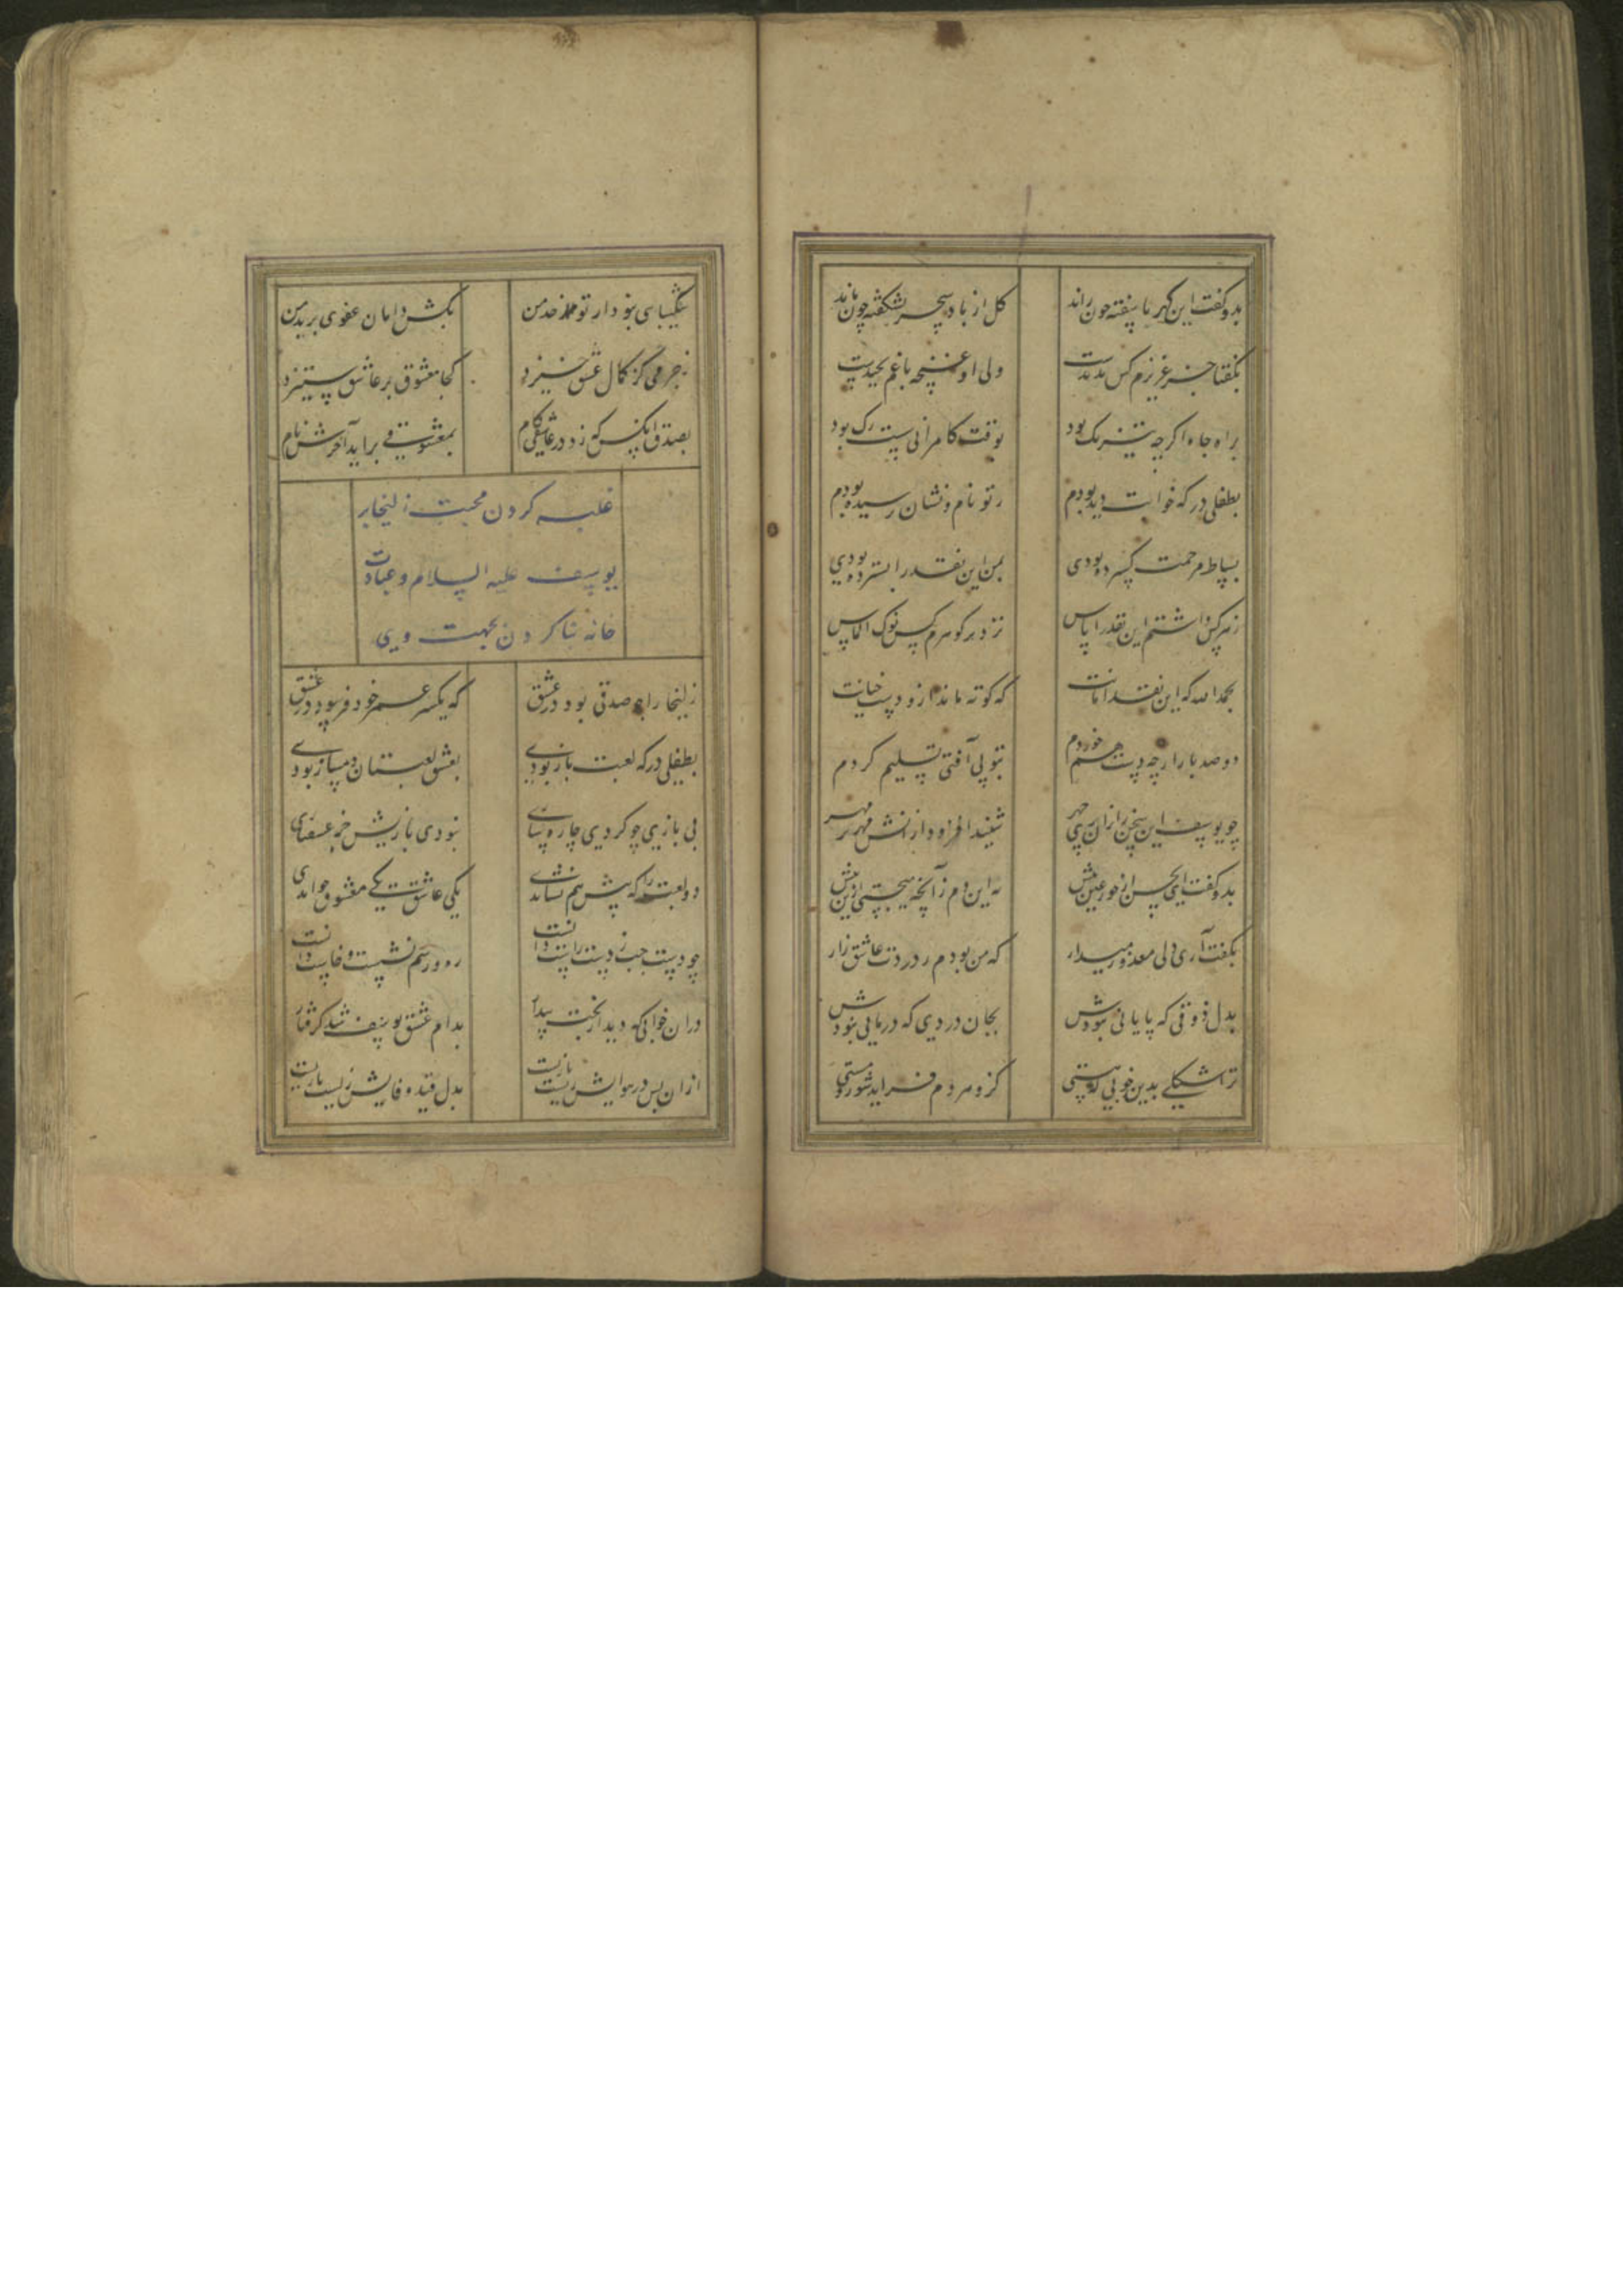 بدو گفت این گهر ناسفته چون ماند گل از باد سحر نشکفته چون ماند
بگفتا جز عزیزم کس ندیدست ولی او غنچه باغم نچیدست
براه جاه اگرچه تیزتک بود بوقت کامرانی سست رک بود
بطفلی در که خوابت دیده بودم ز تو نام و نشان پرسیده بودم
بساط مرحمت گسترده بودی بمن این نقد را بسپرده بودی
ز هر کس داشتم این نقد را پاس نزد بر گوهرم کس نوک الماس
بحمد الله که این نقد امانت که کوته ماند ازو دست خیانت
دو صد بار ارچه دست خوردم بتو بی آفتی تسلیم کردم
چو یوسف این سخن را زان پری چهر شنید افزود ازانش مهر بر مهر
بدو گفت ای بحسن از حور عین بیش نه این دم ز آنچه میجستی ازین پیش
بگفت آری ولی معذور میدار که من بودم ز دردت عاشق زار
بدل ذوقی که پایانی نبودش بجان دردی که درمانی نبودش
ترا شکلی بدین خوبی که هستی کزو هر دم فزاید شور و مستی
شکیبایی نبود از تو حد من بکش دامان عفوی بر بد من
ز جرمی کز کمال عشق خیزد کجا معشوق بر عاشق ستیزد
بصدق آنکس که زد در عاشقی گام بمعشوقی بر آید آخرش نام
غلبه کردن محبت زلیخا بر
یوسف علیه السلام و عبادت
خانه بنا کردن بجهت وی
زلیخا را چو صدقی بود در عشق که یکسر عمر خود فرسود در عشق
بطفلی در که لعبت باز بودی بعشق لعبتان دمساز بودی
پی بازی چو کردی چاره سازی نبودی بازیش جز عشقبازی
دو لعبت را که پیش هم نشاندی یکی عاشق یکی معشوق خواندی
چو دست چپ ز دست راست دانست ره و رسم نشست و خاست دانست
در ان خوابی که دید از بخت بیدار بدام عشق یوسف شد گرفتار